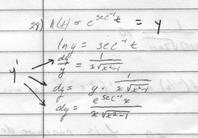 28) h(t) = e^{sec⁻¹ t} = y
ln y = sec⁻¹ t
y' dy/y = 1/(x√(x²-1))
dy = y · 1/(x√(x²-1))
dy = e^{sec⁻¹ x}/(x√(x²-1))